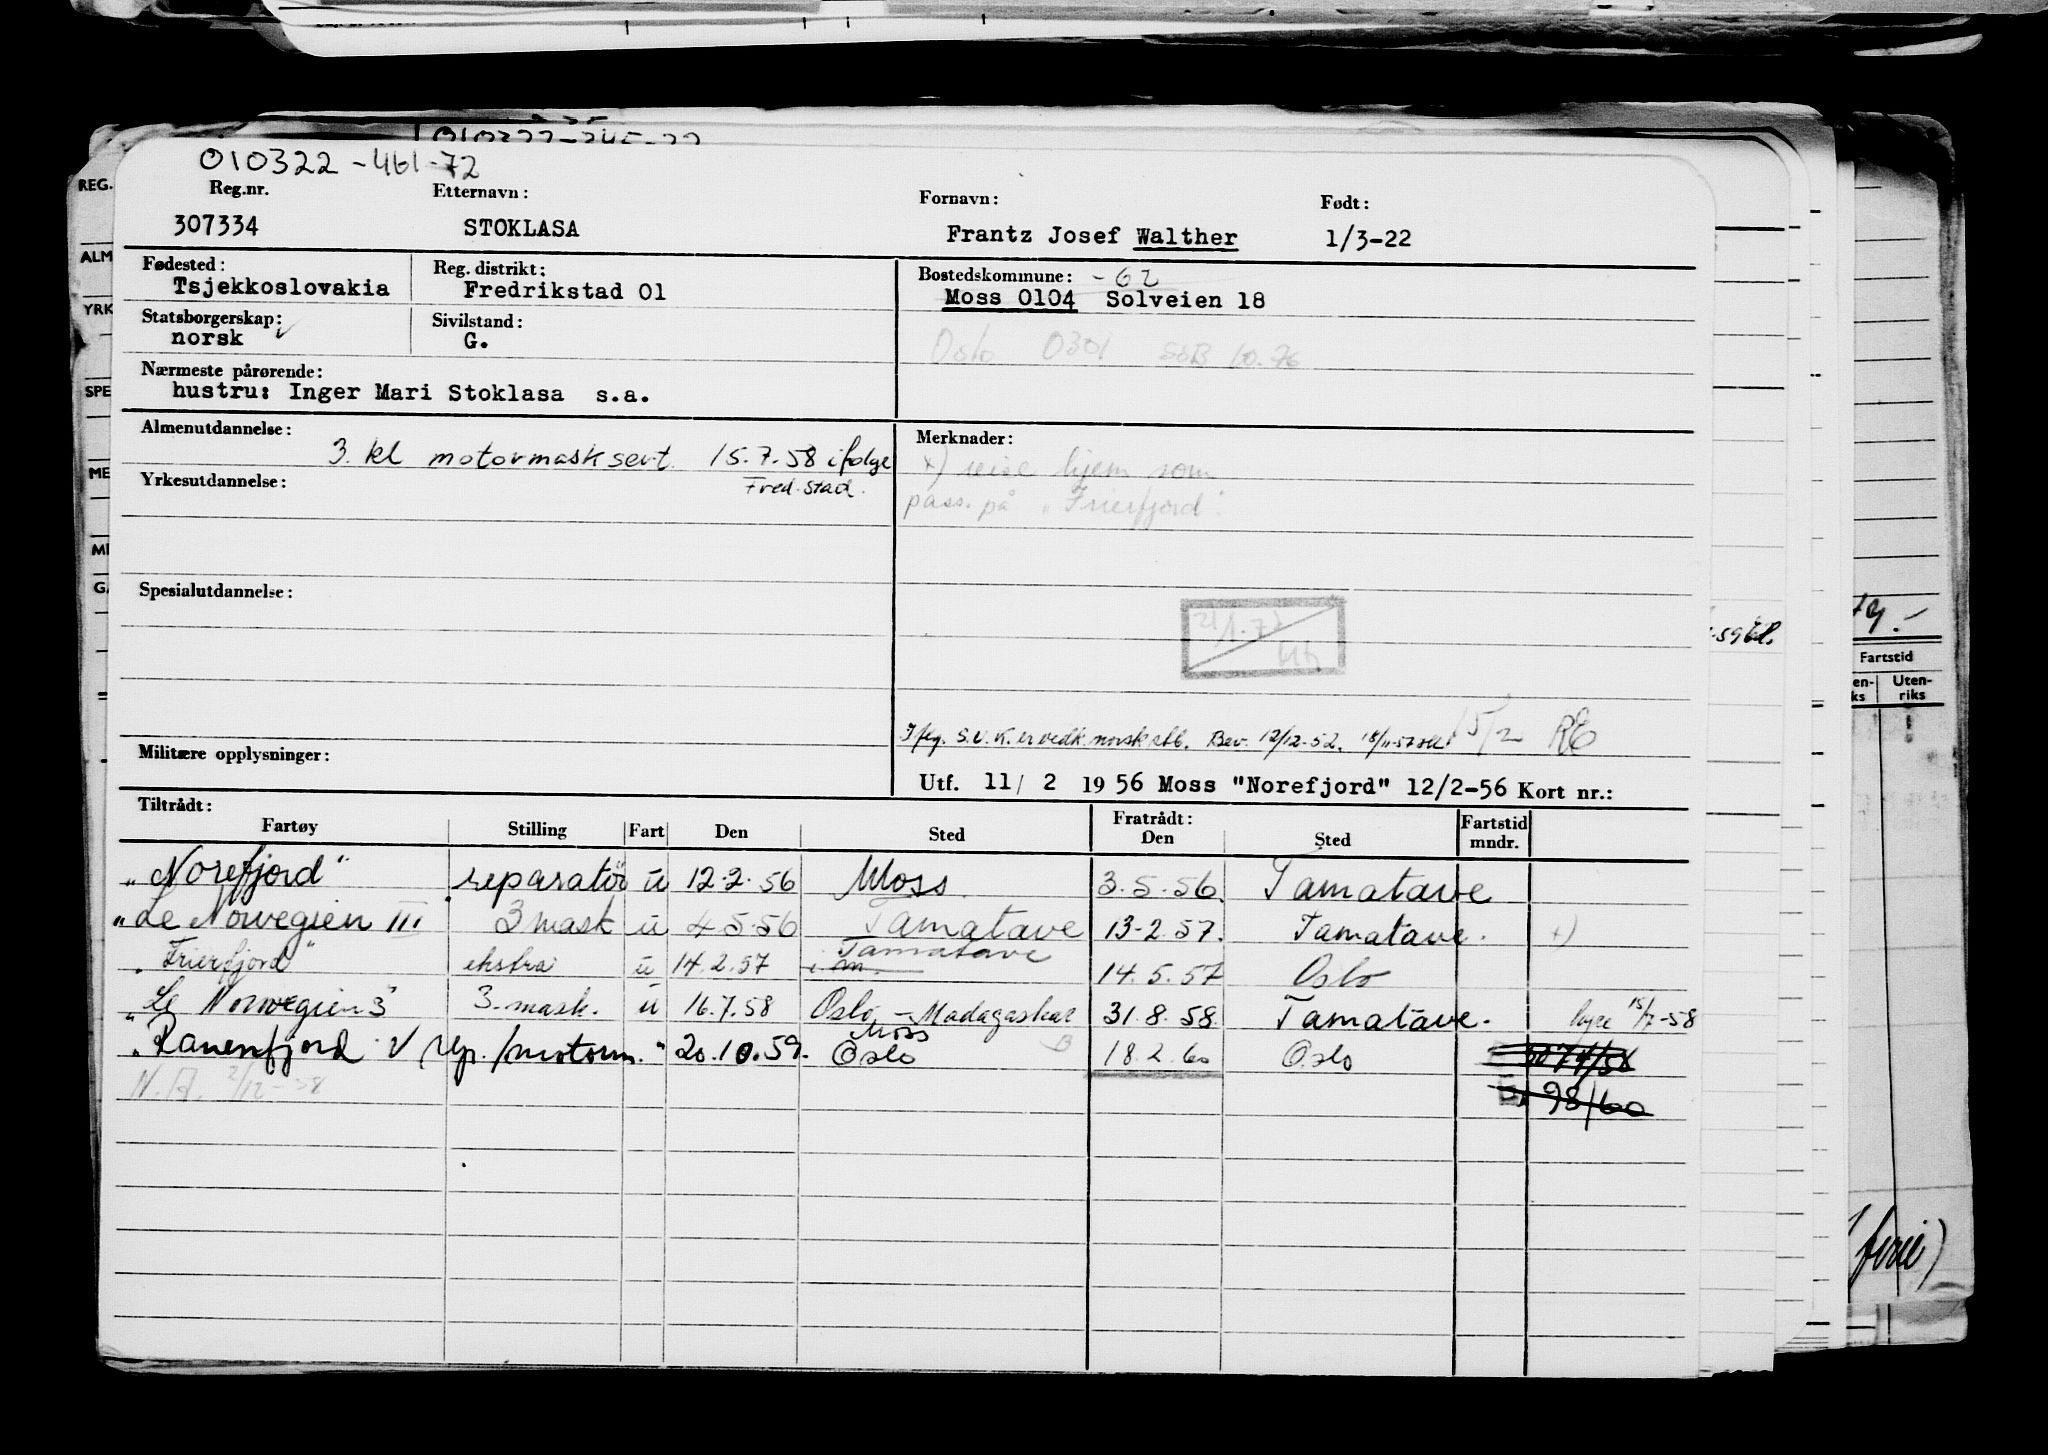 010322-461-72
Reg.nr. Etternavn: Fornavn: Født:
307334 STOKLASA Frantz Josef Walther 1/3-22
Fødested: Reg. distrikt: Bostedskommune: -62
Tsjekkoslovakia Fredrikstad 01 Moss 0104 Solveien 18
Statsborgerskap: Sivilstand:
norsk G. Oslo 0301 SSB 10.76
Nærmeste pårørende:
hustru: Inger Mari Stoklasa s.a.
Almenutdannelse: Merknader:
3. kl motormask sert. 15.7.58 ifølge
Fred.stad.
+) reise hjem som
pass. på "Frierfjord".
Yrkesutdannelse:
Spesialutdannelse:
21/1.72
Ifлg. S.U.K. er vedk norsk stb. Bev. 12/12-52. 18/11-57 15/2 RE
Militære opplysninger:
Utf. 11/ 2 1956 Moss "Norefjord" 12/2-56 Kort nr.:
Tiltrådt: Fratrådt: Fartstid
Fartøy Stilling Fart Den Sted Den Sted mndr.
"Norefjord" reparatör u 12.2.56 Moss 3.5.56. Tamatave
"Le Norvegien III 3 mask u 4-5-56 Tamatave 13-2.57. Tamatave. +)
"Frierfjord" ekstra u 14.2.57 Tamatave 14.5.57 Oslo
"Le Norvegien 3" 3.mask. u 16.7.58 Oslo - Madagaskar 31.8.58. Tamatave. 15/7-58
"Ranenfjord" V rep./motorm." 20.10.59. Moss Oslo 18.2.60 Oslo
N.A. 2/12-58
98/60
REG.
ALM
YRK
SPE
ME
MI
GA
-59
Fartstid
Uten-
riks